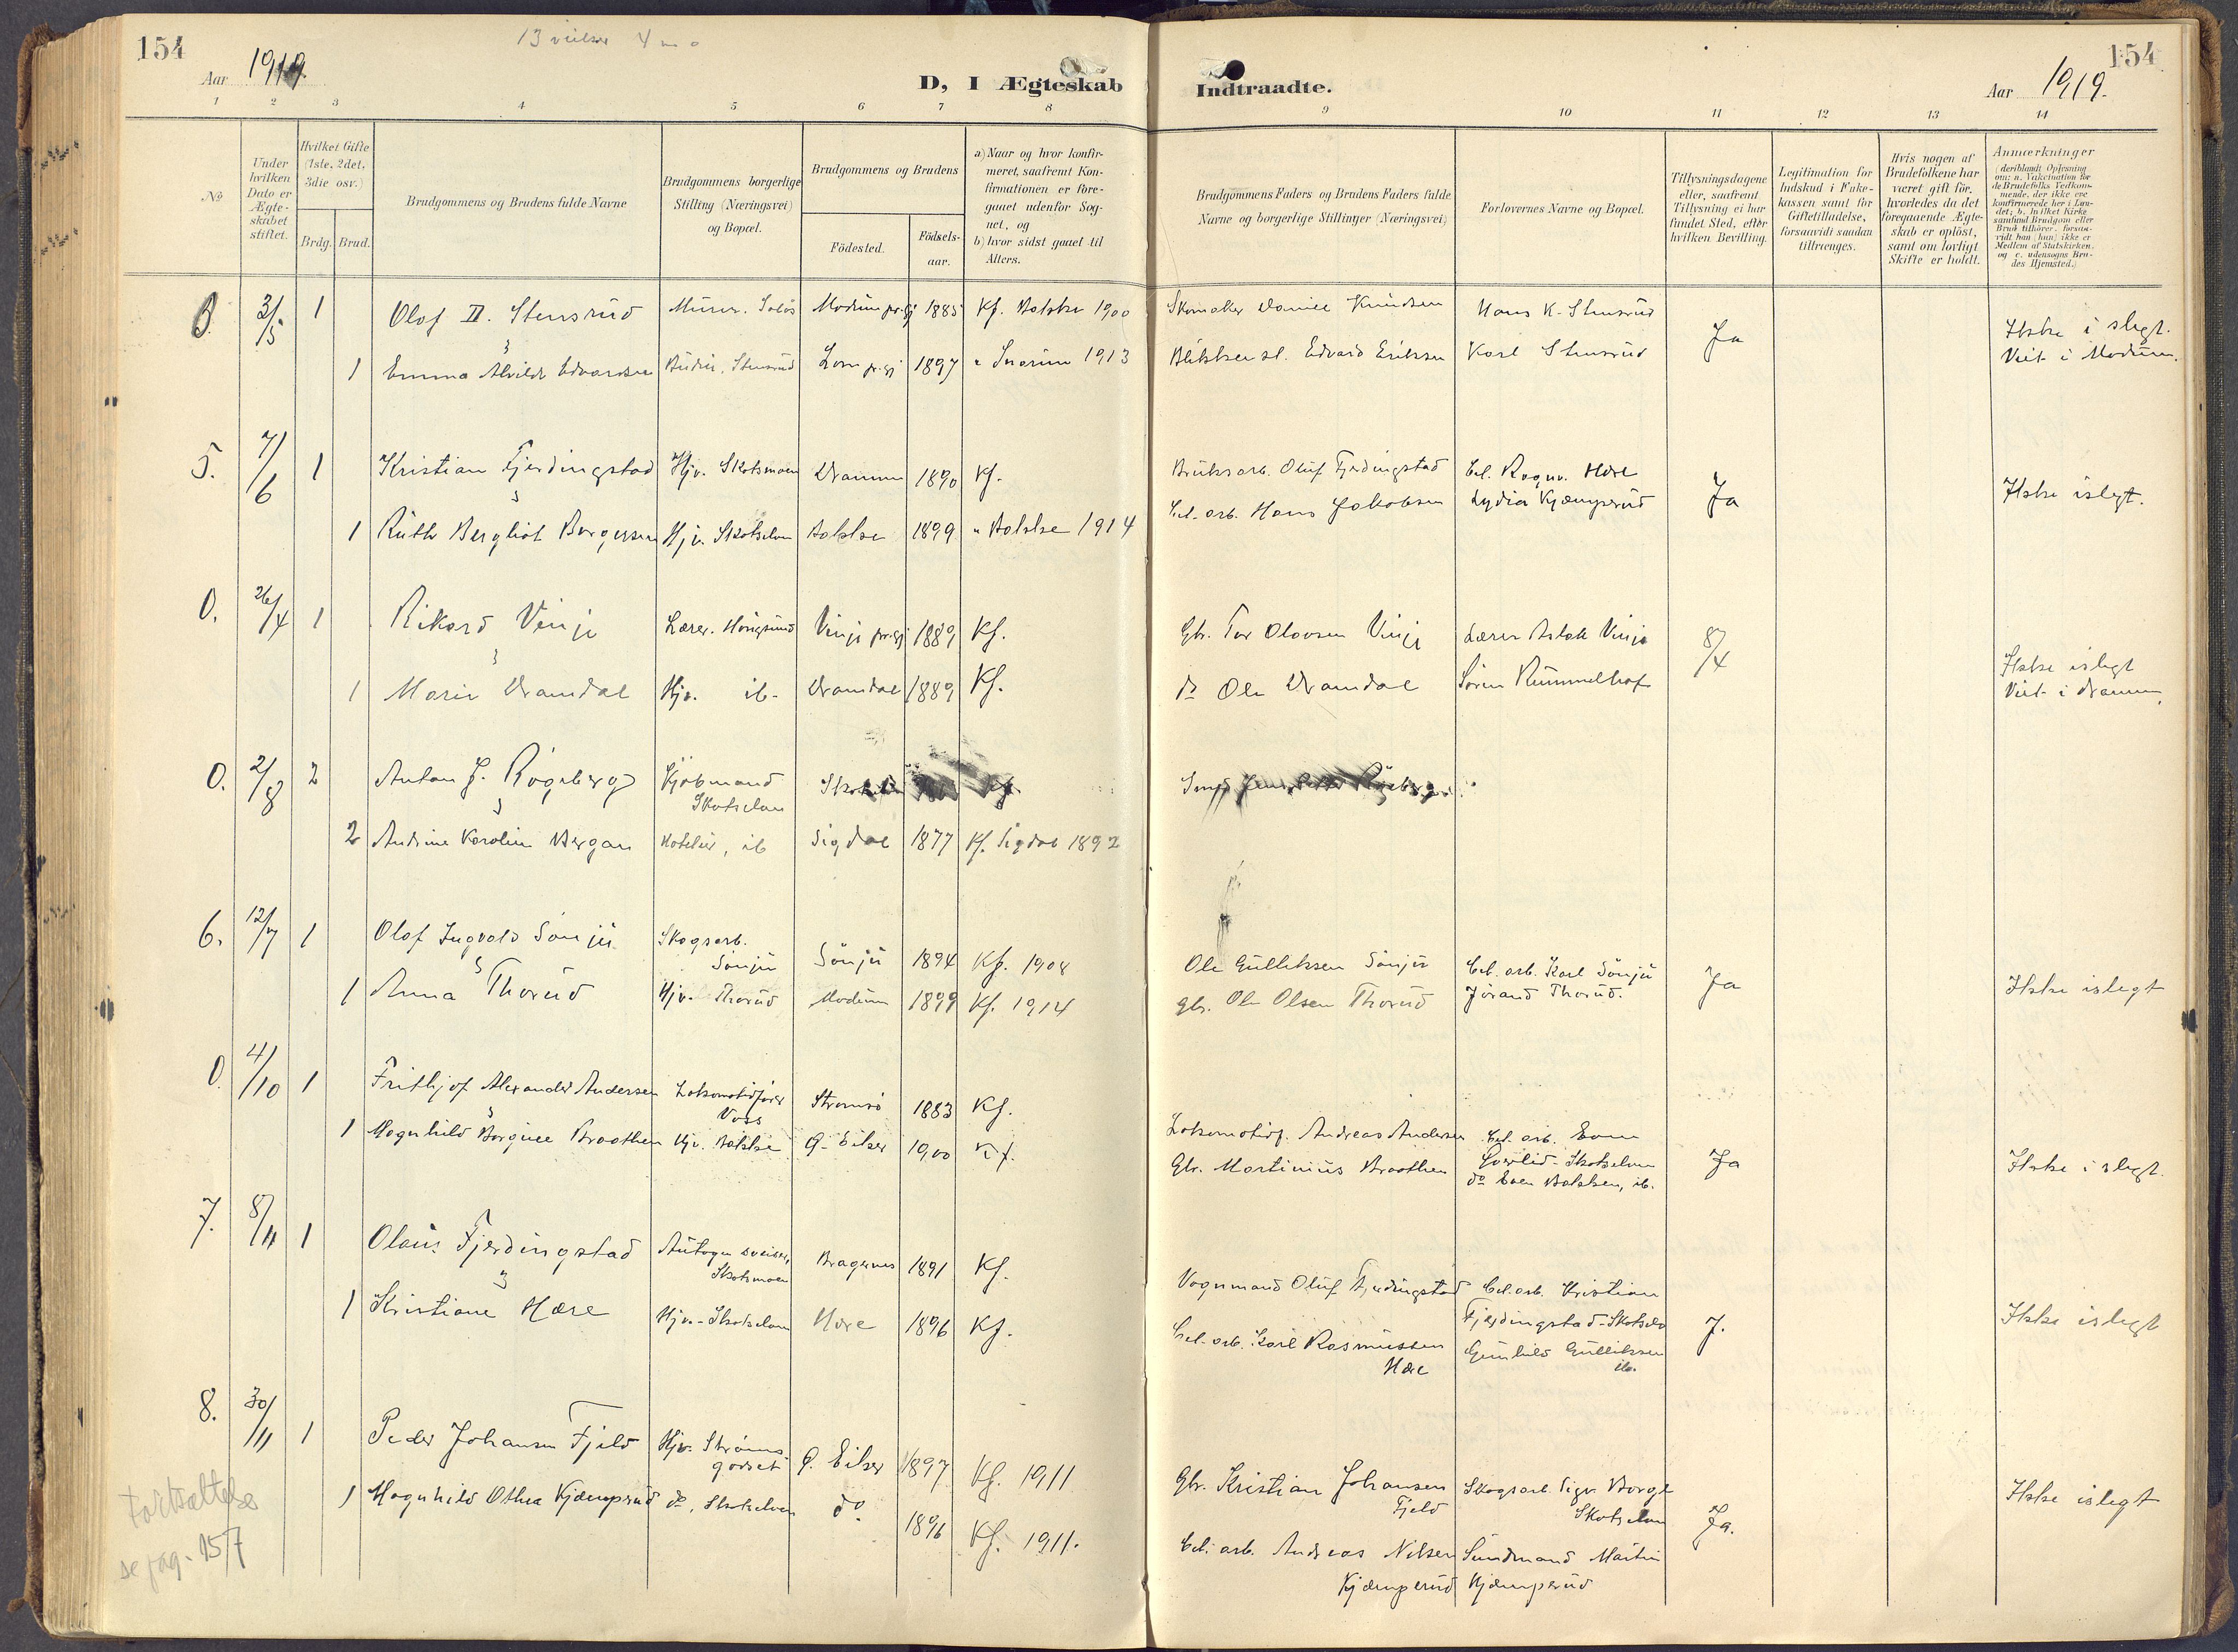 154
13 vielser
Aar 1919.
D, I Ægteskab
Indtraadte.
154
Aar 1919.
1 2 3 4 5 6 7 8 9 10 11 12 13 14
No
Under hvilken Dato er Ægteskabet stiftet.
Hvilket Gifte (1ste, 2det, 3die osv.)
Brdg. Brud.
Brudgommens og Brudens fulde Navne
Brudgommens borgerlige Stilling (Næringsvei) og Bopæl.
Brudgommens og Brudens
Födested.
Födsels-aar.
a) Naar og hvor konfirmeret, saafremt Konfirmationen er foregaaet udenfor Sognet, og
b) hvor sidst gaaet til Alters.
Brudgommens Faders og Brudens Faders fulde Navne og borgerlige Stillinger (Næringsvei)
Forlovernes Navne og Bopæl.
Tillysningsdagene eller, saafremt Tillysning ei har fundet Sted, efter hvilken Bevilling.
Legitimation for Indskud i Enkekassen samt for Giftetilladelse, forsaavidt saadan tiltrænges.
Hvis nogen af Brudefolkene har været gift för, hvorledes da det foregaaende Ægteskab er oplöst, samt om lovligt Skifte er holdt.
Anmærkninger (deriblandt Oplysning om: a. Vakcination for de Brudefolks Vedkommende, der ikke ere konfirmerede her i Landet; b. hvilket Kirkesamfund Brudgom eller Brud tilhører, forsaavidt han (hun) ikke er Medlem af Statskirken, og c. udensogns Brudes Hjemsted.)
0. 3/5 1 Olof D. Stensrud Murer. Modum prgj 1885 Kf. Bakke 1900 Skomaker Daniel Knudsen Hans K. Stensrud Ja Ikke i slegt.
1 Emma Alvilde Edvardsen Budeie, Stensrud Lom prgj 1897 " Snarum 1913 Edvard Eriksen Karl Stensrud Viet i Modum.
5. 7/6 1 Kristian Fjerdingstad Hjv. Skotsmoen Dramm 1890 Kf. Bruksarb. Oluf Fjerdingstad Cel. Ragnv. Hære Ja Ikke i slegt.
1 Ruth Bergliot Borgersen Hjv. Skotselven Bakke 1899 " Bakke 1914 Cel. arb. Hans Jakobsen Lydia Kjæmperud
0. 26/4 1 Rikard Vinje Lærer. Hougsund Vinje prgj 1889 Kf. Gbr. Tor Olavsen Vinje Lærer Aslak Vinje 8/4 Ikke i slegt
1 Marie Dramdal Hjv. ib. Dramdal 1889 Kf. do Ole Dramdal Sören Rummelhof Viet i Dramm.
0. 2/8 2 Anton J. Rögeberg Kjöbmand Skotselven
2 Andrine Karoline Bergan ib Sigdal 1877 Kf. Sigdal 1892
6. 12/7 1 Olaf Ingvald Sönju Skogsarb. Sönju Sönju 1894 Kf. 1908 Ole Gulliksen Sönju Cel. arb. Karl Sönju Ja Ikke i slegt
1 Anna Thorud Hjv. Thorud Modum 1899 Kf. 1914 Gbr. Ole Olsen Thorud Jörand Thorud.
0 4/10 1 Frithjof Alexander Andersen Lokomotivförer Voss Strömsö 1883 Kf. Lokomotivf. Andreas Andersen Cel. arb. Even
1 Magnhild Borgine Braathen Hjv. Bakke Ø. Eiker 1900 Kf. Gbr. Martinius Braathen Skotselven do Even Bakken, ib. Ja Ikke i slegt.
7. 8/11 1 Olaus Fjerdingstad Autogen sveiser, Skotsmoen Bragernes 1891 Kf. Vognmand Oluf Fjerdingstad Cel. arb. Kristian Fjerdingstad-Skotselv J. Ikke i slegt
1 Kristiane Hære Hjv. Skotselven Hære 1896 Kf. Cel. arb. Karl Rasmussen Hære Gunhild Gulliksen ib.
8. 30/11 1 Peder Johansen Fjeld Hjv. Strömsgodset Ø. Eiker 1897 Kf. 1911 Gbr. Kristian Johansen Fjeld Skogsarb. Sigv. Borge Skotselven Ja. Ikke i slegt
1 Magnhild Othea Kjæmperud do, Skotselven do. 1896 Kf. 1911. Cel. arb. Andreas Nilsen Kjæmperud Sundmand Martin Kjæmperud
Fortsættelse
se pag. 157